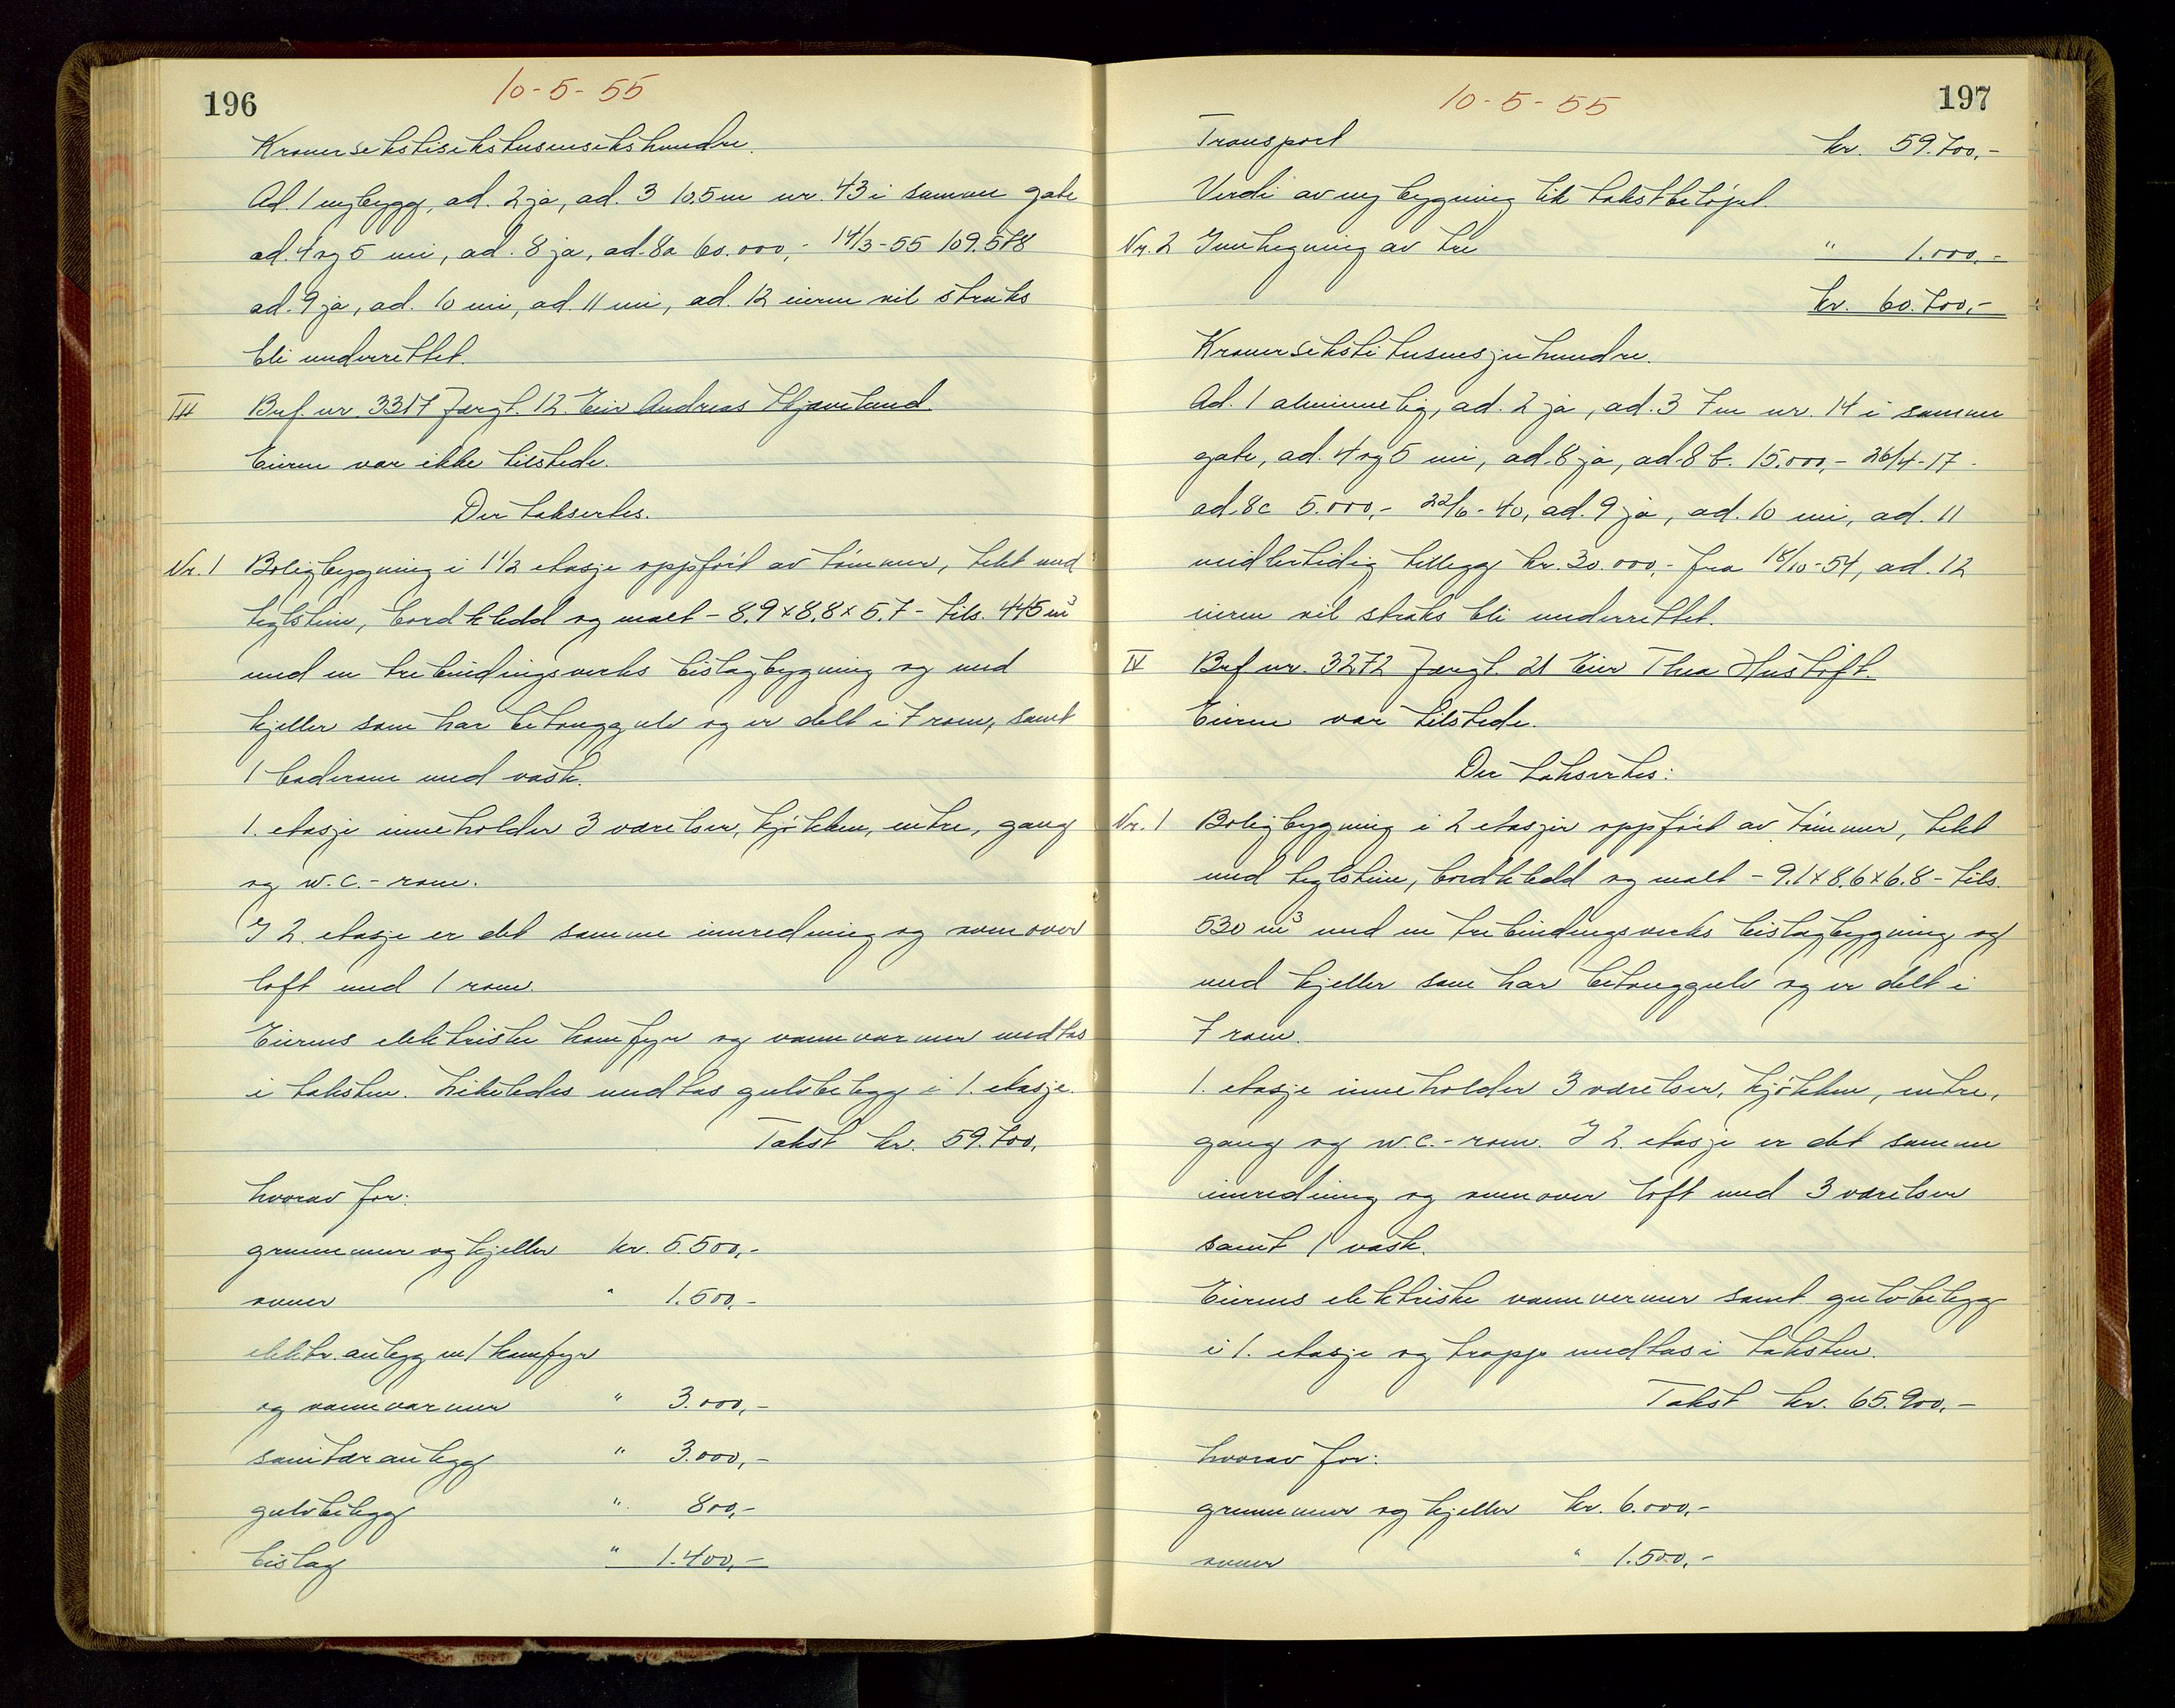 196
10-5-55
Kronersekstisekstusensekshundre.
Ad. 1 nybygg, ad. 2 ja, ad. 3 10.5m nr. 43 i samme gate
ad. 4 og 5 nei, ad. 8 ja, ad. 8a 60.000,- 14/3-55 109.578
ad. 9 ja, ad. 10 nei, ad. 11 nei, ad. 12 eieren vil straks
bli underrettet.
III Brf. nr 3317 Jørgt. 12. Eier Andreas
Eieren var ikke tilstede.
Der taksertes.
Nr. 1 Boligbygning i 1 1/2 etasje oppført av tømmer, tekt med
teglstein, bordkledd og malt - 8.9 x 8.8 x 5.7 - tils. 445 m³
med en trebindingsverks bislagbygning og med
kjeller som har betonggulv og er delt i 7 rom, samt
1 baderom med vask.
1. etasje inneholder 3 værelser, kjøkken, entre, gang
og w.c.-rom.
I 2. etasje er det samme innredning og ovenover
loft med 1 rom.
Eierens elektriske komfyr og vannvarmer medtas
i taksten. Likeledes medtas gulvbelegg i 1. etasje.
Takst kr. 59.700,
hvorav for:
grunnmur og kjeller kr. 5.500,-
ovner " 1.500,-
elektr. anlegg m/komfyr
og vannvarmer " 3.000,-
sanitæranlegg " 3.000,-
gulvbelegg " 800,-
bislag " 1.400,-
197
10-5-55
Transport kr. 59.700,-
Verdi av ny bygning lik takstbeløpet.
Nr. 2 Innhegning av tre " 1.000,-
kr. 60.700,-
Kronersekstitusensjuhundre.
Ad. 1 alminnelig, ad. 2 ja, ad. 3 7m nr. 14 i samme
gate, ad. 4 og 5 nei, ad. 8 ja, ad. 8 b. 15.000,- 26/4-17.
ad. 8c 5.000,- 22/6-40, ad. 9 ja, ad. 10 nei, ad. 11
midlertidig tillegg kr. 30.000,- fra 18/10-54, ad. 12
eieren vil straks bli underrettet.
IV Brf nr. 3272 Jørgt. 21 Eier Thea Hustoft.
Eieren var tilstede.
Der taksertes:
Nr. 1 Boligbygning i 2 etasjer oppført av tømmer, tekt
med teglstein, bordkledd og malt - 9.1 x 8.6 x 6.8 - tils.
530 m³ med en trebindingsverks bislagbygning og
med kjeller som har betonggulv og er delt i
7 rom.
1. etasje inneholder 3 værelser, kjøkken, entre,
gang og w.c.-rom. I 2. etasje er det samme
innredning og ovenover loft med 3 værelser
samt 1 vask.
Eierens elektriske vannvermer samt gulvbelegg
i 1. etasje og trapp medtas i taksten.
Takst kr. 65.900,-
hvorav for:
grunnmur og kjeller kr. 6.000,-
ovner " 1.500,-